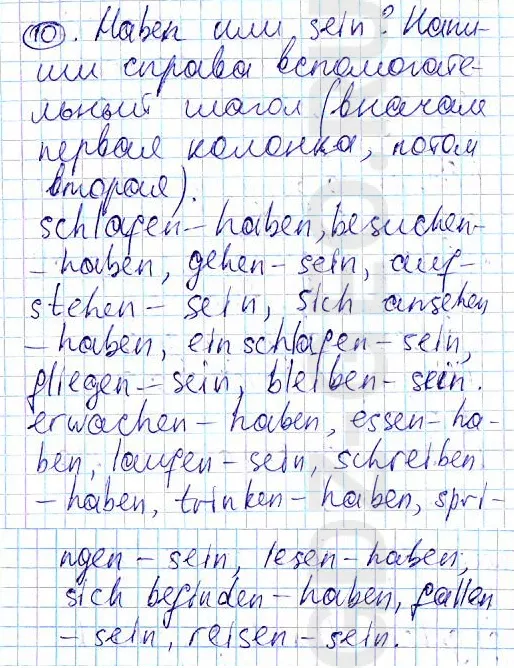 10. Haben или sein? Напи-
ши справа вспомогате-
льный глагол (вначале
первая колонка, потом
вторая).
schlafen – haben, besuchen-
– haben, gehen – sein, auf-
stehen – sein, sich ansehen
– haben, einschlafen – sein,
fliegen – sein, bleiben – sein.
erwachen – haben, essen – ha-
ben, laufen – sein, schreiben
– haben, trinken – haben, spri-
ngen – sein, lesen – haben,
sich befinden – haben, fallen
– sein, reisen – sein.